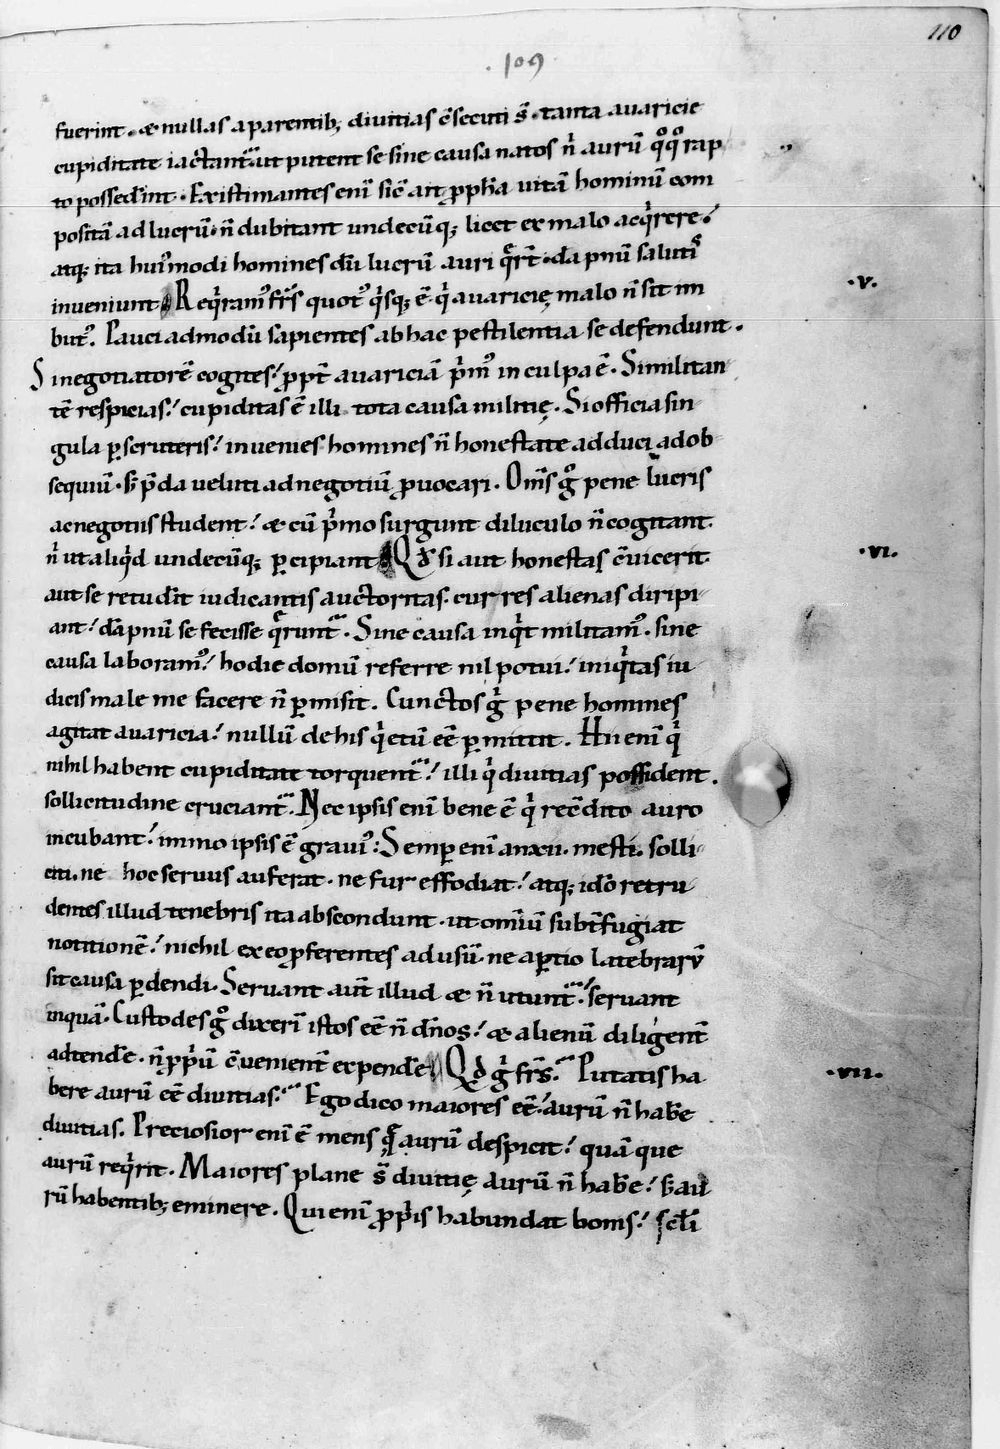 110
.109
fuerint. & nullas a parentib; diuitias c̄secuti s̄. tanta auaricie
cupiditate iactant᷑ ut putent se sine causa natos n̄ aurū qͦqͦ rap
to possed̄int. Existimantes eni᷑ sic̄ ait p̱ph̄a uitā hominū com
positā ad lucrū. n̄ dubitant undecūq; licet ex malo acqͥrere.
atq; ita huiꝰmodi homines dū lucrū auri qͣr̄t. dāpnū salutiꝭ
inueniunt Reqͥramꝰ fr̄s quotꝰqͥsq; ē qͥ auaricię malo n̄ sit im
butꝰ. Pauci admodū sapientes ab hac pestilentia se defendunt.
.V.
Si negotiatorē cogites. ꝓpt̄ auariciā pͥmꝰ in culpa ē. Si militan
tē respicias. cupiditas ē illi tota causa militię. Si officia sin
gula ꝑscruteris. inuenies homines n̄ honestate adduci ad ob
sequiū. s; p̄da ueluti ad negotiū ꝓuocari. Om̄s gͦ pene lucris
ac negotiis student. & cū pͥmo surgunt diluculo n̄ cogitant.
n̄ ut aliqͥd undecūq; ꝑcipiant Qd̄ si aut honestas c̄uicerit.
.VI.
aut se retud̄it iudicantis auctoritas. cur res alienas diripi
ant. dāpnū se fecisse qͣrunt᷑. Sine causa inqͥt militamꝰ. sine
causa laboramꝰ. hodie domū referre nil potui. iniqͥtas iu
dicis male me facere n̄ ꝑmisit. Cunctos gͥ pene homines
agitat auaricia. nullū de his qͥetū eē ꝑmittit. Hii eni᷑ qͥ
nihil habent cupiditate torquent᷑. illi qͥ diuitias possident.
sollicitudine cruciant᷑. Nec ipsis eni᷑ bene ē qͥ rec̄dito auro
incubant. immo ipsis ē grauiꝰ. Semꝑ eni᷑ anxii. mesti. solli
citi. ne hoc seruus auferat. ne fur effodiat. atq; idō retru
dentes illud tenebris ita abscondunt. ut omīū subt̄fugiat
notitionē. nichil ex eo ꝓferentes ad usū. ne aꝑtio latebrarū
sit causa ꝑdendi. Seruant aut̄ illud & n̄ utunt᷑. seruant
inquā. Custodes gͦ dixeri᷑ istos eē n̄ dn̄os. & alienū diligent̄
adtend̄e. n̄ ꝓpͥū c̄uenient̄ expend̄e Qd̄ gͥ fr̄s. Putatis ha
.VII.
bere aurū eē diuitias. Ego dico maiores eē. aurū n̄ hab̄e
diuitias. Preciosior eni᷑ ē mens qͣ aurū despicit. quā que
aurū reqͥrit. Maiores plane s̄ diuitię aurū n̄ hab̄e. s; au
rū habentib; eminere. Qui eni᷑ ꝓpͥis habundat bonis. scl̄i